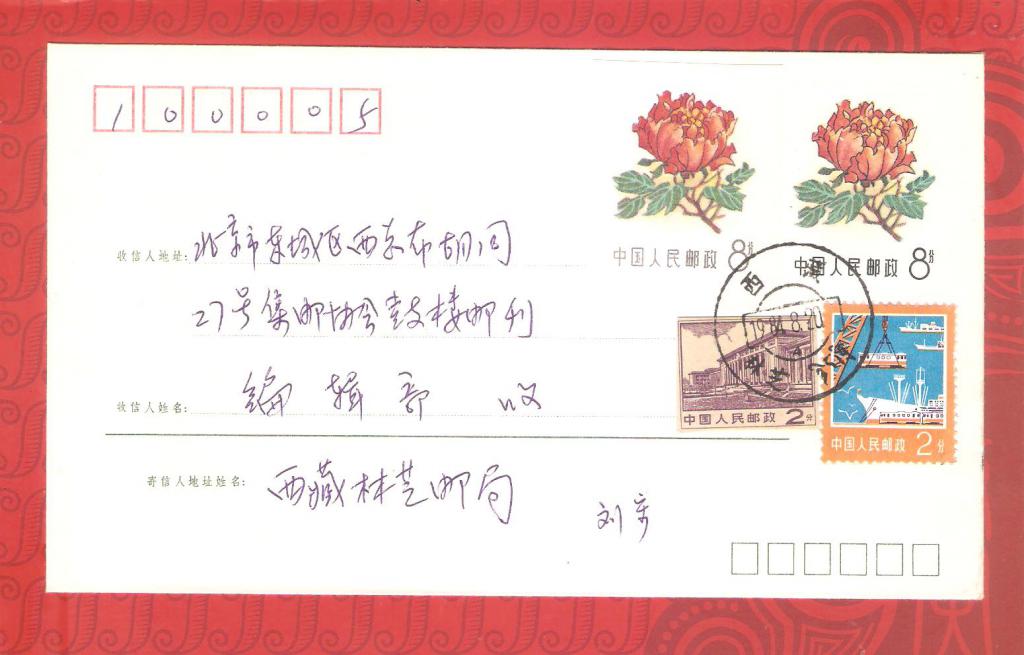 100005
中国人民邮政 8分
中国人民邮政 8分
收信人地址: 北京市东城区西总布胡同
27号集邮协会鼓楼邮刊
收信人姓名: 编辑部 收
西藏
1984.8.20
林芝
中国人民邮政 2分
中国人民邮政 2分
寄信人地址姓名: 西藏林芝邮局
刘